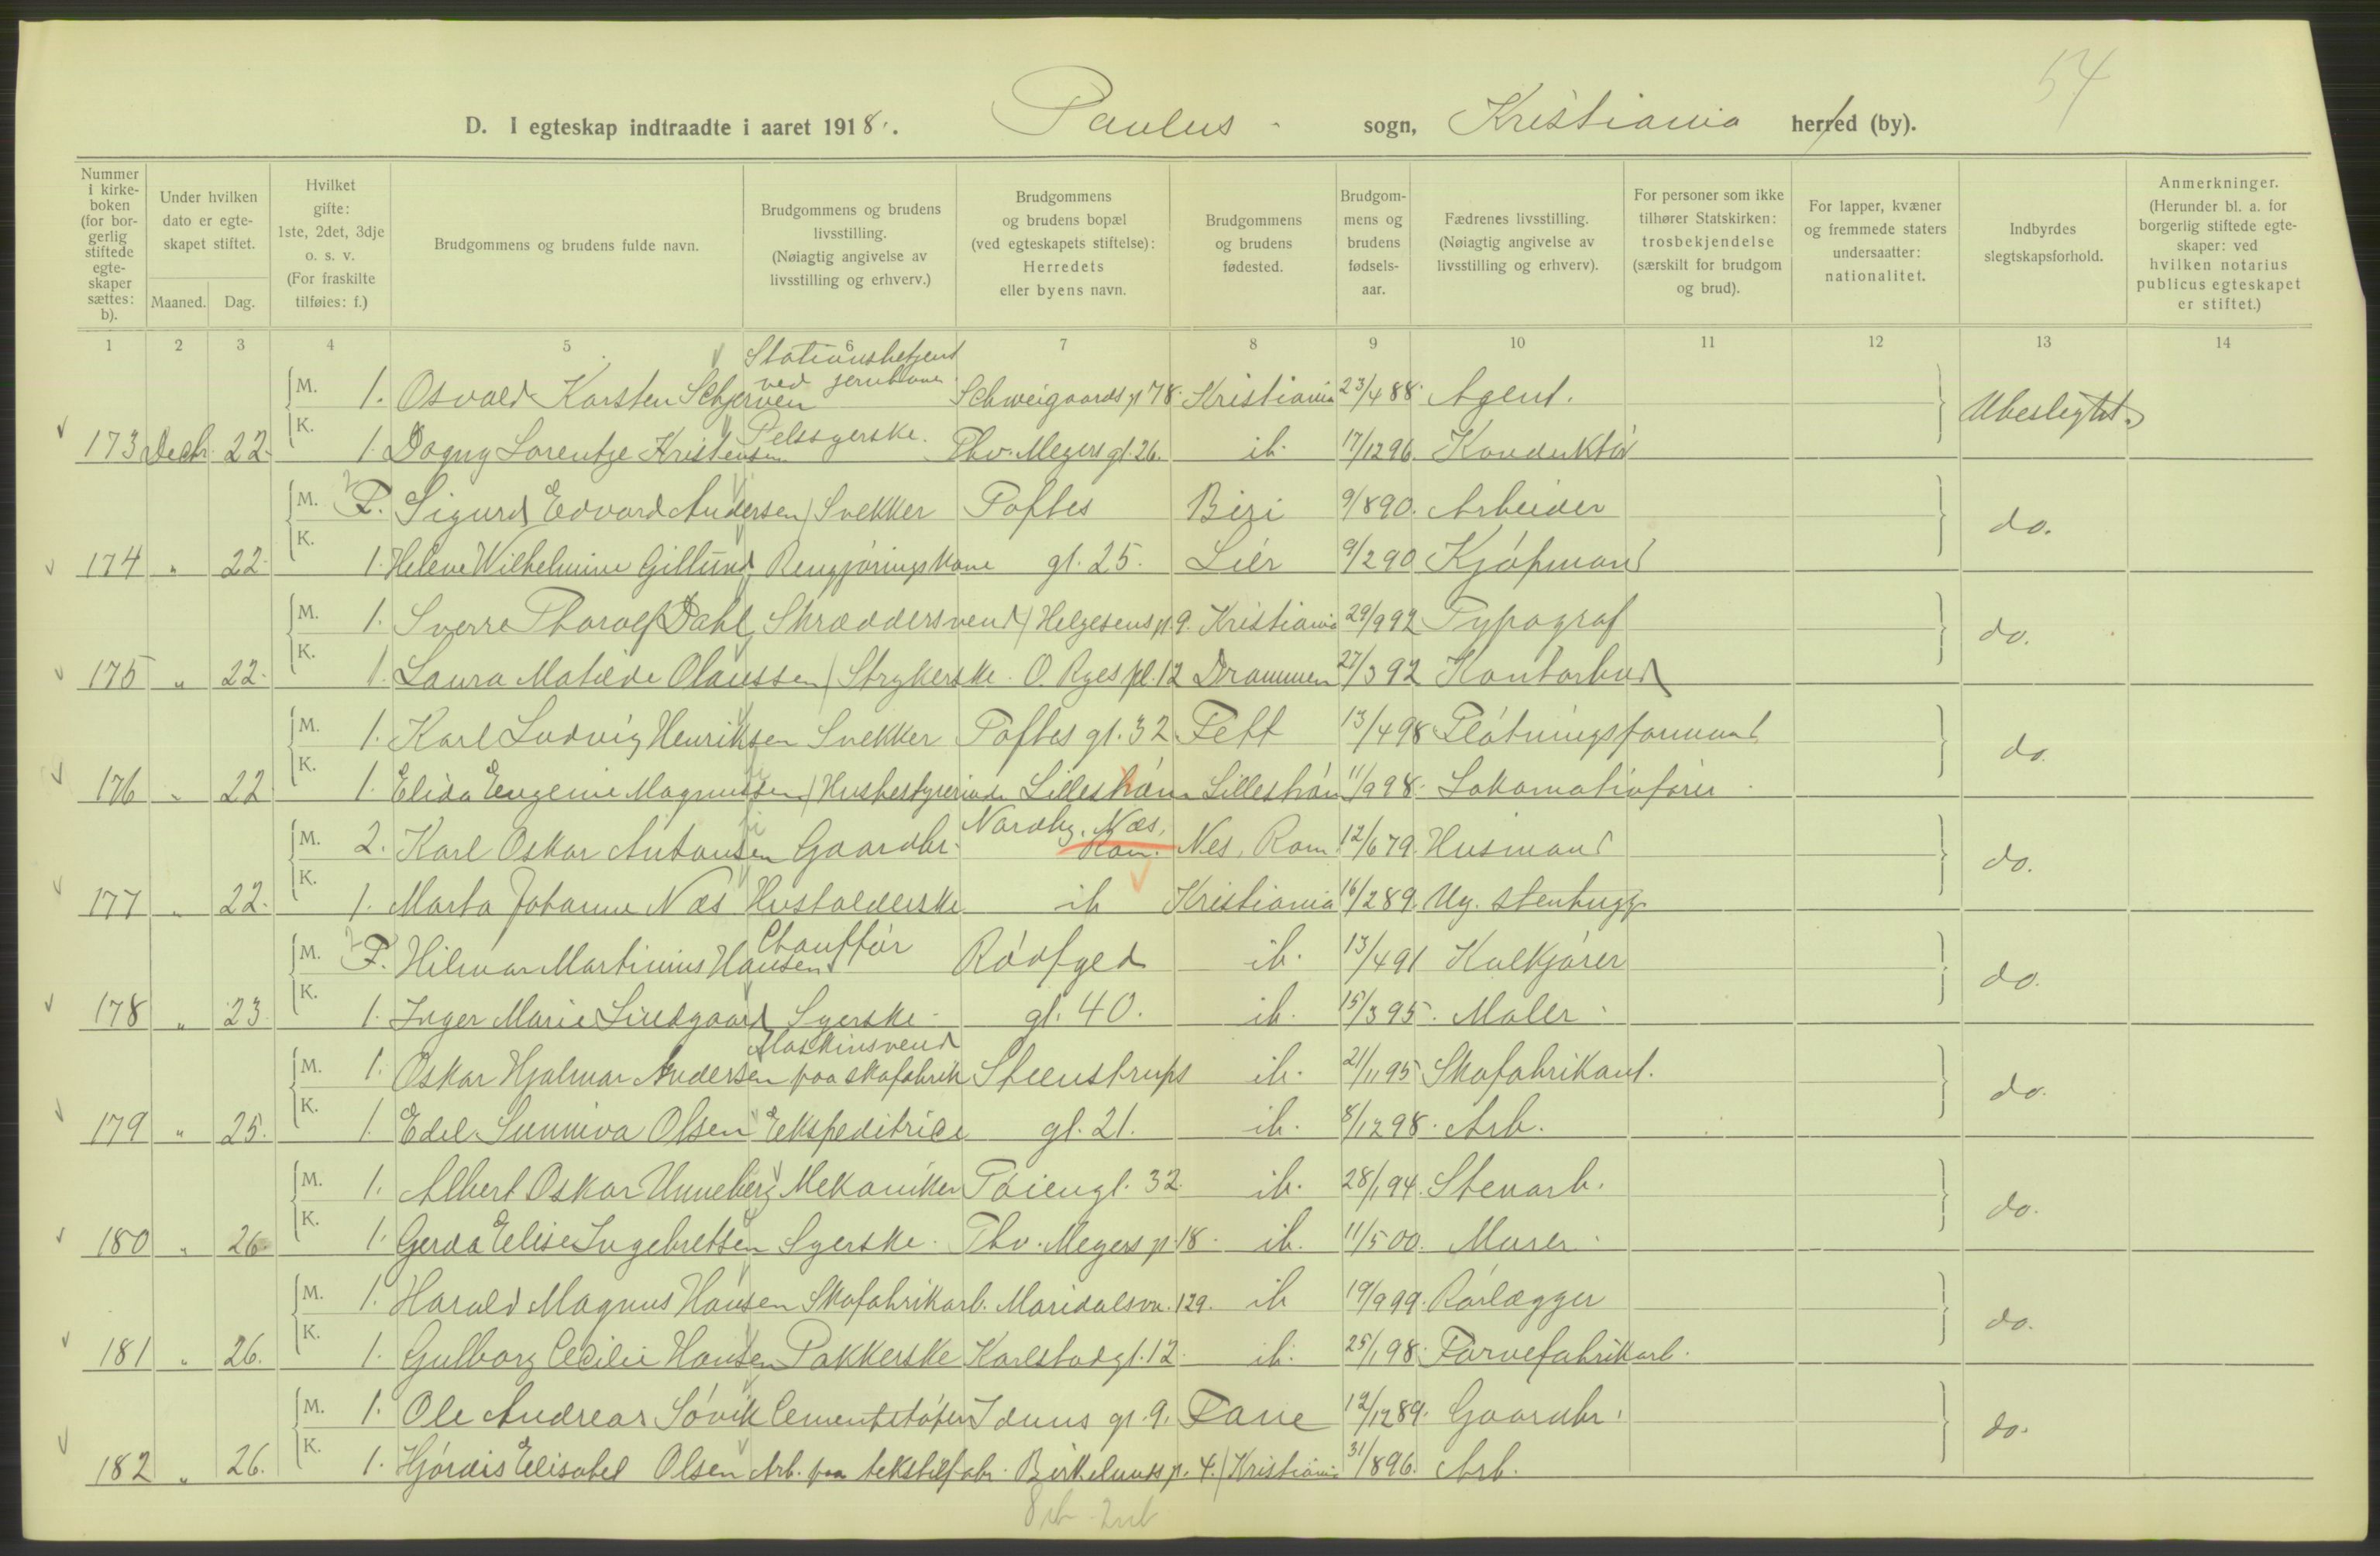 54
D. I egteskap indtraadte i aaret 1918. Paulus sogn, Kristiania herred (by).
Nummer i kirkeboken (for borgerlig stiftede egteskaper sættes: b).
Under hvilken dato er egteskapet stiftet.
Maaned. Dag.
Hvilket gifte: 1ste, 2det, 3dje o. s. v. (For fraskilte tilføies: f.)
Brudgommens og brudens fulde navn.
Brudgommens og brudens livsstilling. (Nøiagtig angivelse av livsstilling og erhverv.)
Brudgommens og brudens bopæl (ved egteskapets stiftelse): Herredets eller byens navn.
Brudgommens og brudens fødested.
Brudgommens og brudens fødselsaar.
Fædrenes livsstilling. (Nøiagtig angivelse av livsstilling og erhverv).
For personer som ikke tilhører Statskirken: trosbekjendelse (særskilt for brudgom og brud).
For lapper, kvæner og fremmede staters undersaatter: nationalitet.
Indbyrdes slegtskapsforhold.
Anmerkninger. (Herunder bl. a. for borgerlig stiftede egteskaper: ved hvilken notarius publicus egteskapet er stiftet.)
1 2 3 4 5 6 7 8 9 10 11 12 13 14
M. 1. Osvald Karsten Schjerven Stationsbetjent ved jernbanen Schweigaards gt 78. Kristiania 23/4 88. Agent. Ubeslegtet.
173 Decbr. 22. K. 1. Dagny Lorentze Kristensen Pelssyerske. Thv. Meyers gt. 26. ib. 17/12 96. Konduktør
M. F. Sigurd Edvard Andersen Snekker Toftes Biri 9/8 90. Arbeider do.
174 " 22. K. 1. Helene Wilhelmine Gillund Rengjøringskone gt. 25. Lier 9/2 90 Kjøpmand
M. 1. Sverre Tharalf Dahl Skræddersvend Helgesens gt. 9. Kristiania 29/9 92 Typograf do.
175 " 22. K. 1. Laura Matilde Olaussen Strykerske. O. Ryes pl. 12 Drammen 27/3 92 Kontorbud
M. 1. Karl Ludvig Henriksen Snekker Toftes gt. 32 Fett 13/4 98 Fløtningsformand do.
176 " 22 K. 1. Elida Eugenie Magnussen Husbestyrerinde Lillestrøm Lillestrøm 11/9 98. Lokomotivfører
M. 2. Karl Oskar Antonsen Gaardbr. Nordby, Næs, Rom. Nes, Rom. 12/6 79. Husmand do.
177 " 22. K. 1. Marta Johanne Næs Husholderske ib Kristiania 16/2 89. Ug. Stenhugg.
M. F. Hilmar Martinius Hansen Chauffør Rødfyld ib. 13/4 91 Kulkjører do.
178 " 23. K. 1. Inger Marie Lindgaard Syerske gt. 40. ib. 15/3 95. Maler
M. 1. Oskar Hjalmar Andersen Maskinsvend paa skofabrik Steenstrups ib. 21/11 95 Skofabrikant. do.
179 " 25. K. 1. Edel Sunniva Olsen Ekspeditrice gt. 21. ib. 8/12 98. Arb.
M. 1. Albert Oskar Unneberg Mekaniker Tøiengt. 32. ib. 28/1 94. Stenarb. do.
180 " 26. K. 1. Gerda Elise Ingebretsen Syerske. Thv. Meyers gt. 18. ib. 11/5 00. Murer.
M. 1. Harald Magnus Hansen Skofabrikarb. Maridalsvn. 129. ib 19/9 99. Rørlægger do.
181 " 26. K. 1. Gulborg Cecilie Hansen Pakkerske Karlstadgt. 12 ib. 25/1 98. Farvefabrikarb.
M. 1. Ole Andreas Søvik Cementstøper Iduns gt. 9. Fane 12/12 89. Gaardbr. do.
182 " 26. K. 1. Hjørdis Elisabet Olsen Arb. paa tekstilfabr. Birkelunds gt. 4. Kristiania 31/8 96. Arb.